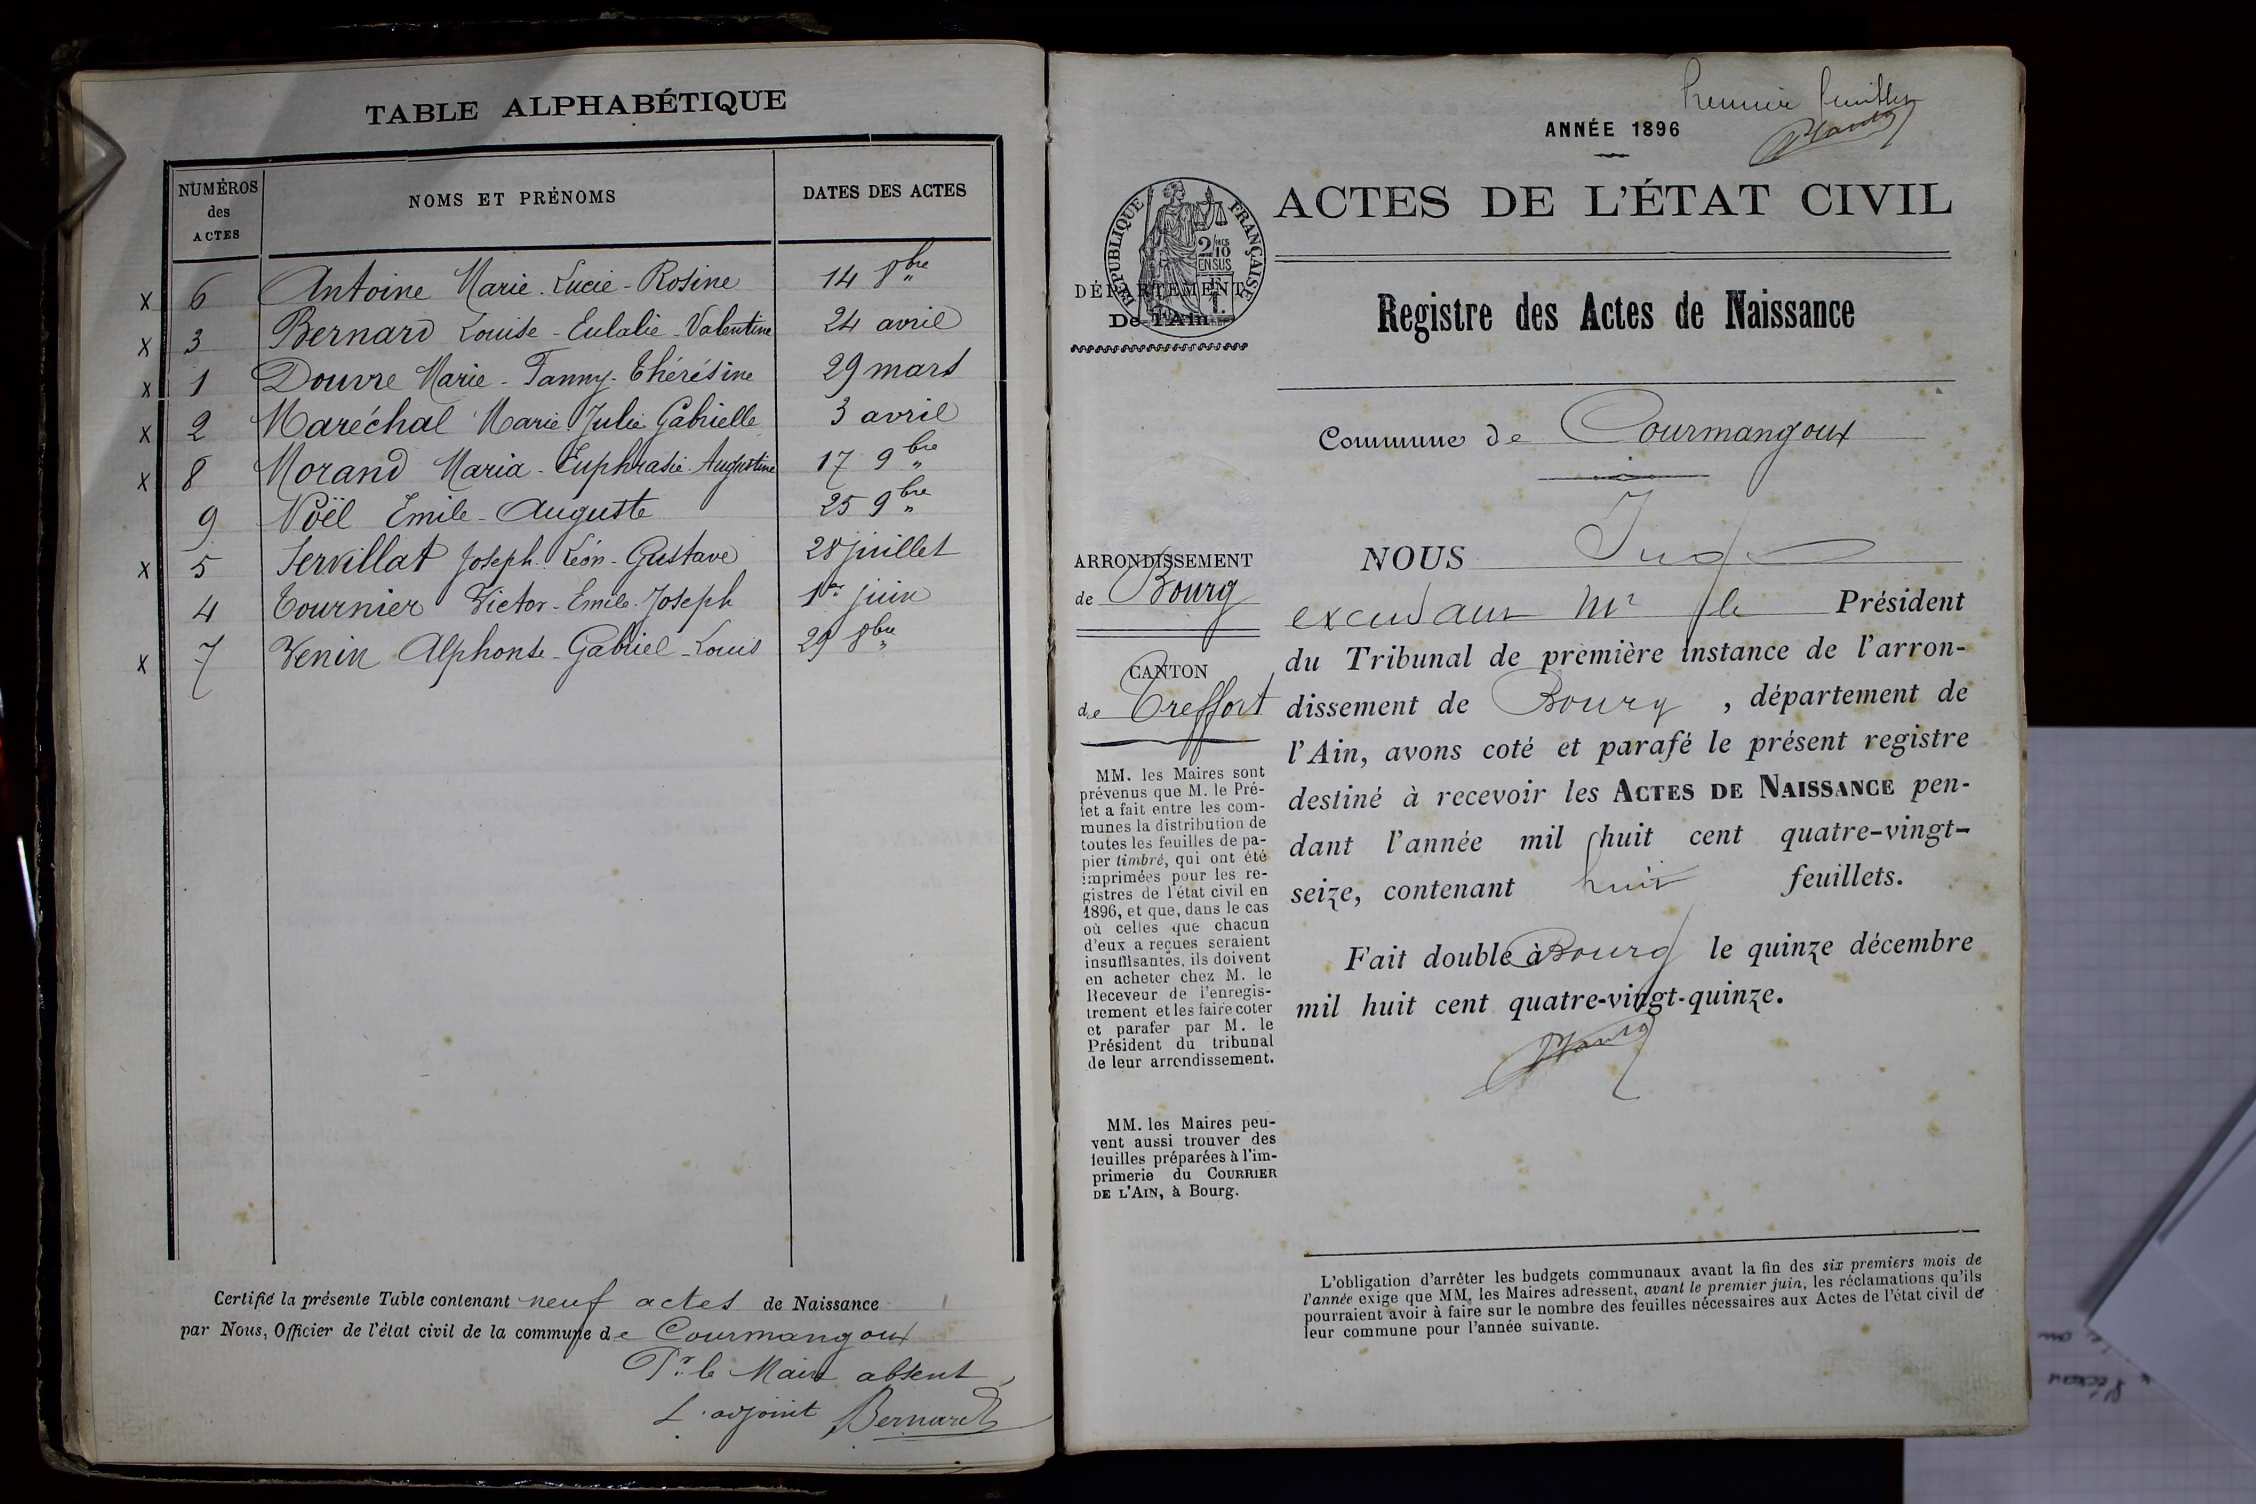 TABLE ALPHABÉTIQUE
NUMÉROS des ACTES NOMS ET PRÉNOMS DATES DES ACTES
x 6 Antoine Marie-Lucie-Rosine 14 8bre
x 3 Bernard Louise-Eulalie-Valentine 24 avril
x 1 Douvre Marie-Fanny-Thérésine 29 mars
x 2 Maréchal Marie Julie Gabrielle 3 avril
x 8 Morand Maria-Euphrasie-Augustine 17 9bre
9 Noël Emile-Auguste 25 9bre
x 5 Servillat Joseph-Léon-Gustave 28 juillet
4 Tournier Victor-Emile-Joseph 1er juin
x 7 Venin Alphonse-Gabriel-Louis 29 8bre
Certifié la présente Table contenant neuf actes de Naissance
par Nous, Officier de l'état civil de la commune de Courmangoux
Pr le Maire absent,
L'adjoint Bernard
Premier feuillet
ANNÉE 1896
RÉPUBLIQUE FRANÇAISE
2/10 EN SUS
ACTES DE L'ÉTAT CIVIL
DÉPARTEMENT
De l'Ain
Registre des Actes de Naissance
Commune de Courmangoux
ARRONDISSEMENT
de Bourg
CANTON
de Treffort
MM. les Maires sont
prévenus que M. le Pré-
fet a fait entre les com-
munes la distribution de
toutes les feuilles de pa-
pier timbré, qui ont été
imprimées pour les re-
gistres de l'état civil en
1896, et que, dans le cas
où celles que chacun
d'eux a reçues seraient
insuffisantes, ils doivent
en acheter chez M. le
Receveur de l'enregis-
trement et les faire coter
et parafer par M. le
Président du tribunal
de leur arrondissement.
MM. les Maires peu-
vent aussi trouver des
feuilles préparées à l'im-
primerie du COURRIER
DE L'AIN, à Bourg.
NOUS Juge
Mr le Président
du Tribunal de première instance de l'arron-
dissement de Bourg, département de
l'Ain, avons coté et parafé le présent registre
destiné à recevoir les ACTES DE NAISSANCE pen-
dant l'année mil huit cent quatre-vingt-
seize, contenant huit feuillets.
Fait double à Bourg le quinze décembre
mil huit cent quatre-vingt-quinze.
L'obligation d'arrêter les budgets communaux avant la fin des six premiers mois de
l'année exige que MM. les Maires adressent, avant le premier juin, les réclamations qu'ils
pourraient avoir à faire sur le nombre des feuilles nécessaires aux Actes de l'état civil de
leur commune pour l'année suivante.